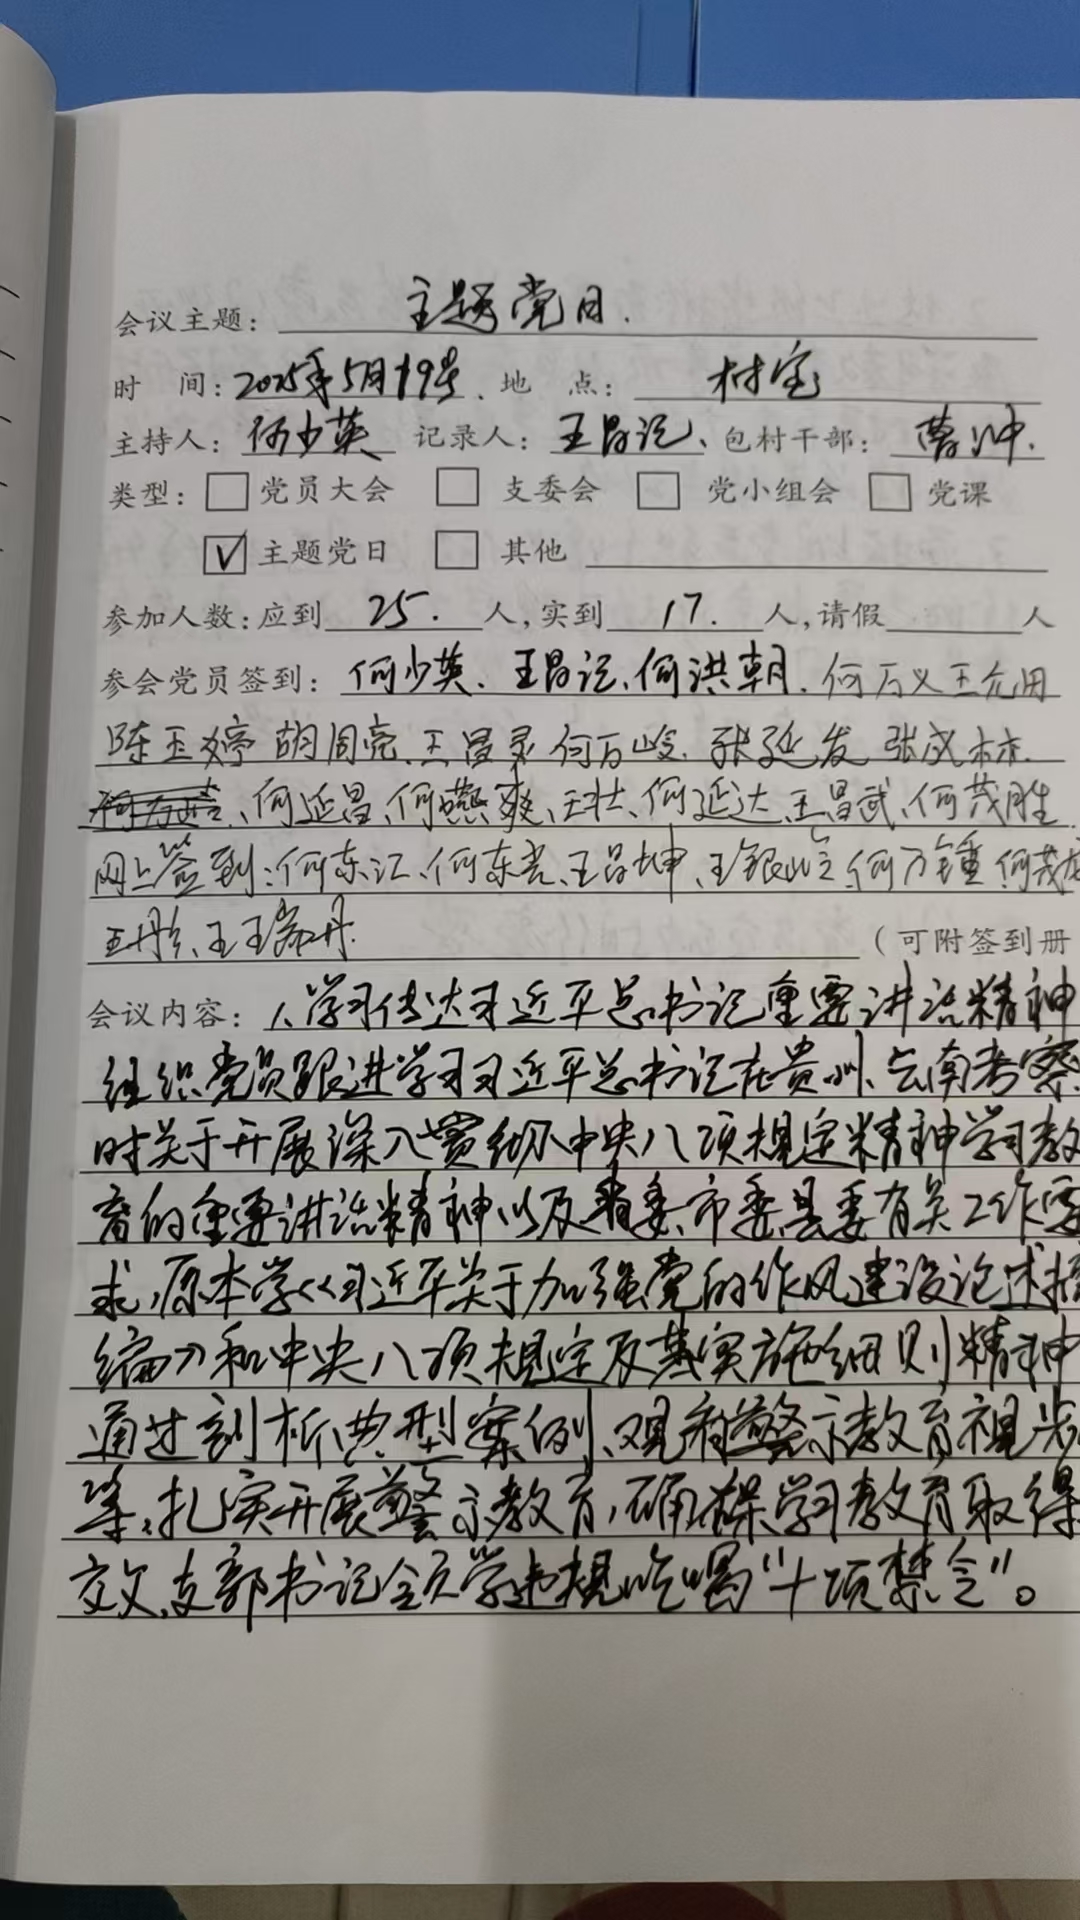 会议主题：主题党日.
时 间：2025年5月19号. 地 点：村室
主持人：何少英 记录人：王昌记、包村干部：曹冲.
类型：□党员大会 □支委会 □党小组会 □党课
☑主题党日 □其他
参加人数：应到25.人，实到17.人，请假 人
参会党员签到：何少英、王昌记、何洪朝.何万义王允用
陈玉婷胡同亮.王昌灵何万岭.张延发 张成林.
、何延昌、何燕爽、王壮、何延达、王昌武、何茂胜
网上签到：何东江、何东亮、王昌坤、王银山、何万锺 何茂
王彤、王
（可附签到册
会议内容：1、学习传达习近平总书记重要讲话精神
组织党员跟进学习习近平总书记在贵州、云南考察
时关于开展深入贯彻中央八项规定精神学习教
育的重要讲话精神以及省委、市委、县委有关工作要
求，原本学《习近平关于加强党的作风建设论述摘
编》和中央八项规定及其实施细则精神
通过剖析典型案例、观看警示教育视步
等，扎实开展警示教育，确保学习教育取得
交文、支部书记领学违规吃喝"十项禁令"。